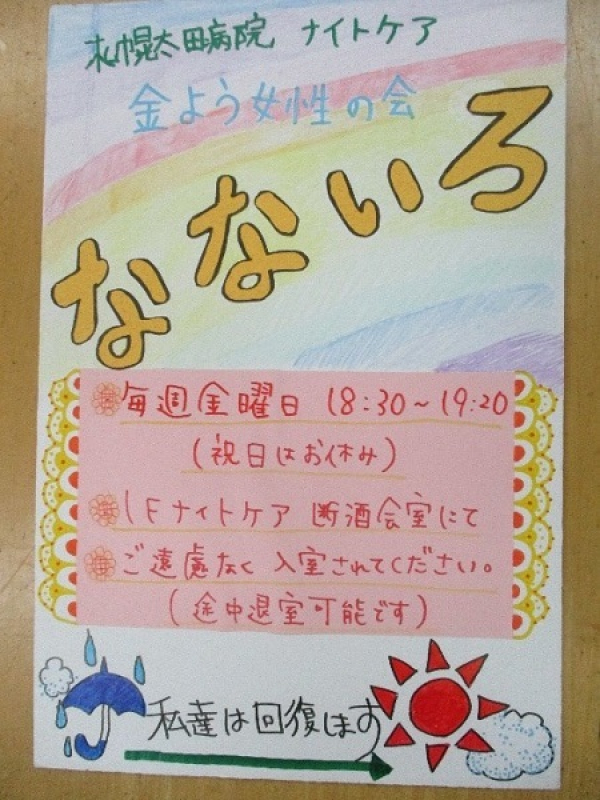 札幌太田病院 ナイトケア
金よう女性の会
なないろ
毎週金曜日 18:30~19:20
(祝日はお休み)
1Fナイトケア 断酒会室にて
ご遠慮なく 入室されてください。
(途中退室可能です)
私達は回復します